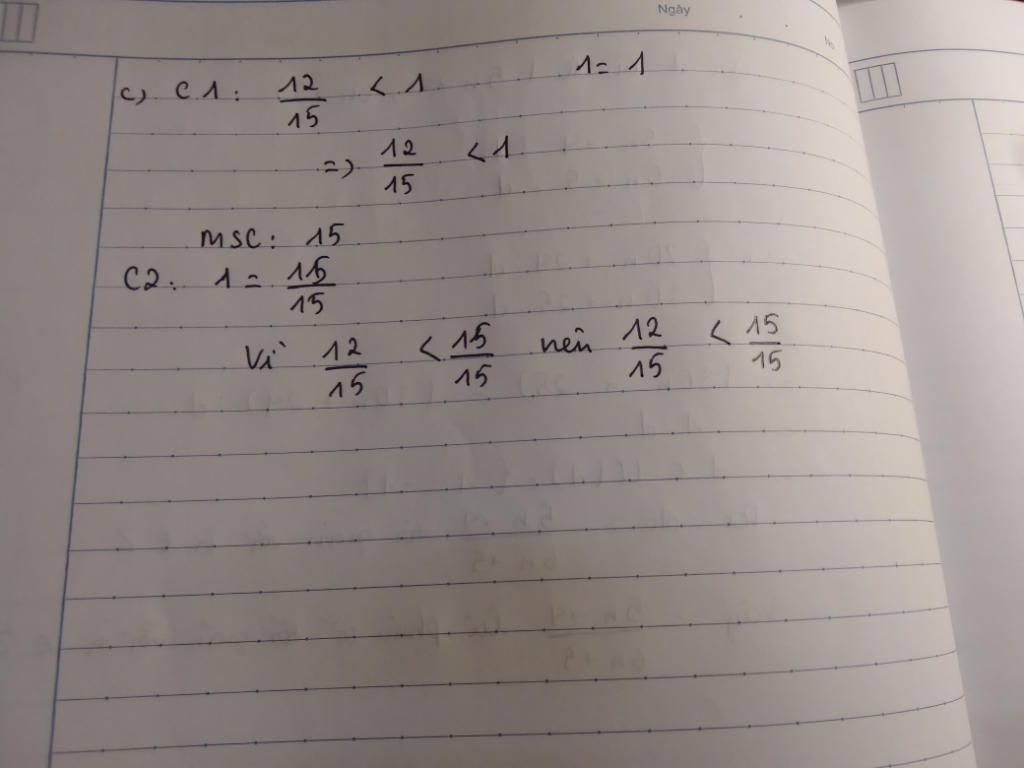 Ngày
No
c) C1: 12/15 < 1 1 = 1
=) 12/15 < 1
MSC: 15
C2: 1 = 15/15
Vì 12/15 < 15/15 nên 12/15 < 15/15